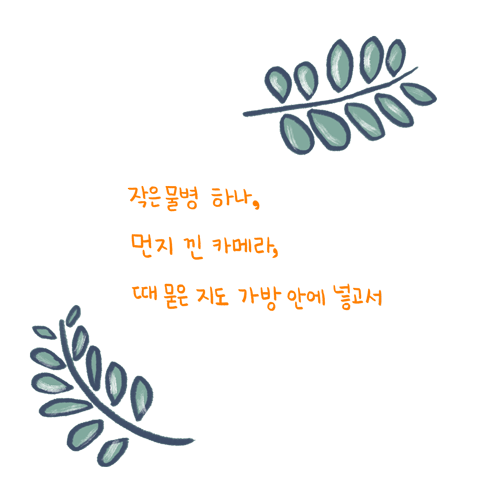 작은 물병 하나,
먼지 낀 카메라,
때 묻은 지도 가방 안에 넣고서